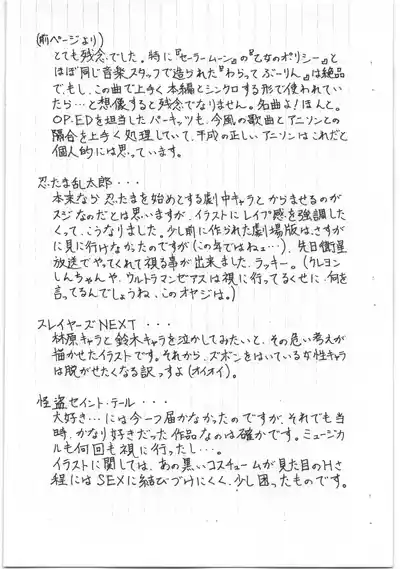 (前ページより)
とても残念でした。特に『セーラームーン』の『乙女のポリシー』と
ほぼ同じ音楽スタッフで造られた『わらってぶーりん』は絶品
で、もし、この曲で上手く本編とシンクロする形で使われてい
たら…と想像すると残念でなりません。名曲よ!ほんと。
OP・EDを担当したパーキッツも、今風の歌曲とアニソンとの
融合を上手く処理していて、平成の正しいアニソンはこれだと
個人的には思っています。
忍たま乱太郎・・・
本来なら忍たまを始めとする劇中キャラとからませるのが
スジなのだとは思いますが、イラストにレイプ感を強調した
くって、こうなりました。少し前に作られた劇場版は、さすが
に見に行けなかったのですが(この年ではねェ…)、先日衛星
放送でやってくれて視る事が出来ました。ラッキー。(クレヨン
しんちゃんや、ウルトラマンゼアスは視に行ってるくせに、何を
言ってるんでしょうね、このオヤジは。)
スレイヤーズNEXT ・・・
林原キャラと鈴木キャラを泣かしてみたいと、その危い考えが
描かせたイラストです。それから、ズボンをはいている女性キャラ
は脱がせたくなる訳っすよ(オイオイ)。
怪盗セイント・テール・・・
大好き…には今一つ届かなかったのですが、それでも当
時、かなり好きだった作品なのは確かです。ミュージカ
ルも何回も視に行ったし…。
イラストに関しては、あの黒いコスチュームが見た目のHさ
程にはSEXに結びづけにくく、少し困ったものです。